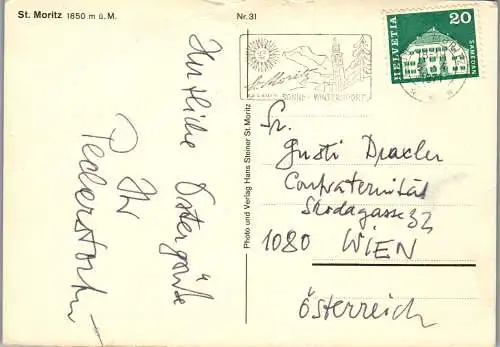 St. Moritz 1850 m ü. M.
Nr. 31
Herzliche Ostergrüße
Ihr
St. Moritz
SONNE + WINTERSPORT
HELVETIA
20
SAMEDAN
Photo und Verlag Hans Steiner St. Moritz
Fr.
Gusti Dracler
Confraternität
Skodagasse 32
1080 WIEN
Österreich